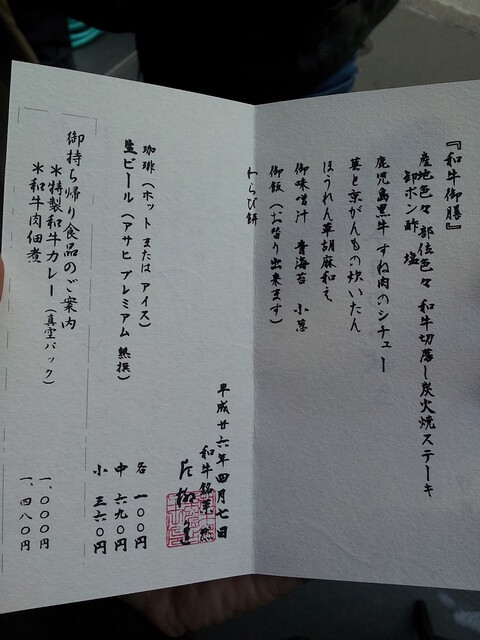 『和牛御膳』
産地色々 部位色々 和牛切落し炭火焼ステーキ
卸ポン酢 塩
鹿児島黒牛 すね肉のシチュー
京がんもの炊いたん
ほうれん草胡麻和え
御味噌汁 青海苔 小葱
御飯（お替り出来ます）
わらび餅
平成廿六年四月七日
和牛銘菜 然
珈琲（ホット または アイス） 各 一〇〇円
生ビール（アサヒ プレミアム 熟撰） 中 六九〇円
小 三六〇円
御持ち帰り食品のご案内
＊特製和牛カレー（真空パック） 一、〇〇〇円
＊和牛肉佃煮 一、四八〇円